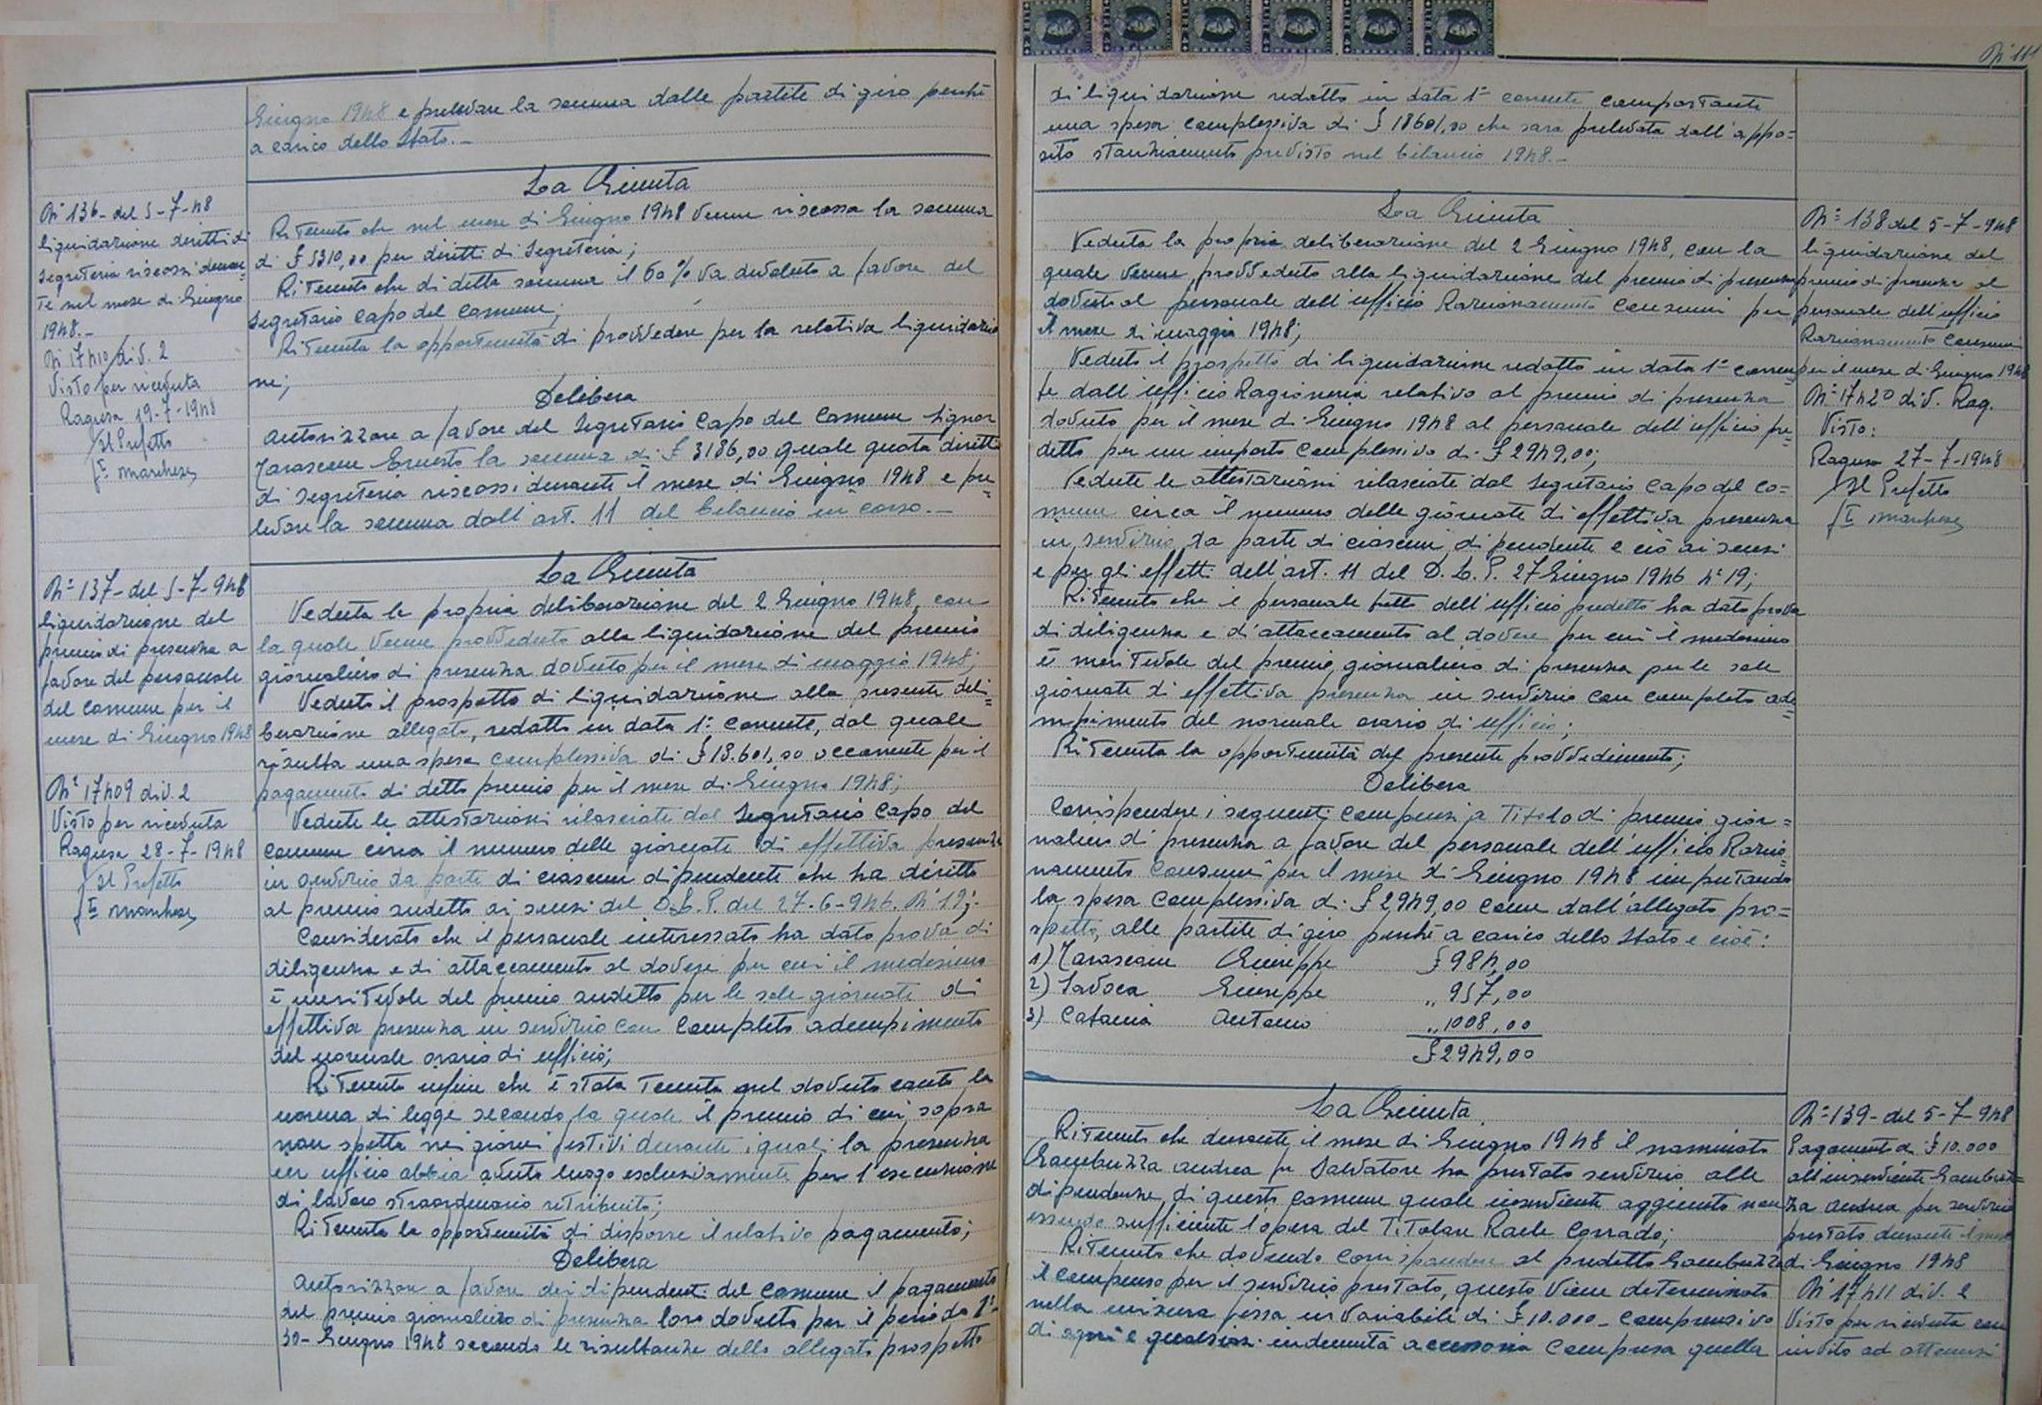 Giugno 1948 e prelevare la somma dalle partite di giro perchè
a carico dello Stato.-
N° 136- del 5-7-48
liquidazione diritti di
segreteria riscossi duran=
te nel mese di Giugno
1948.-
N° 17410 div. 2
Visto per ricevuta
Ragusa 19-7-1948
Il Prefetto
F° Marchese
La Giunta
Ritenuto che nel mese di Giugno 1948 venne riscossa la somma
di £ 5310,00 per diritti di Segreteria;
Ritenuto che di detta somma il 60% va devoluto a favore del
Segretario capo del Comune;
Ritenuta la opportunità di provvedere per la relativa liquidazio
ne;
Delibera
autorizzare a favore del Segretario Capo del Comune Signor
Tarascone Ernesto la somma di £ 3186,00 quale quota diritti
di segreteria riscossi durante il mese di Giugno 1948 e pre=
levare la somma dall'art. 11 del bilancio in corso.-
N° 137- del 5-7-948
liquidazione del
premio di presenza a
favore del personale
del Comune per il
mese di Giugno 1948
N° 17409 div. 2
Visto per ricevuta
Ragusa 28-7-1948
Il Prefetto
F° Marchese
La Giunta
Veduta la propria deliberazione del 2 Giugno 1948, con
la quale venne provveduto alla liquidazione del premio
giornaliero di presenza dovuto per il mese di maggio 1948;
Veduto il prospetto di liquidazione alla presente deli=
berazione allegato, redatto in data 1° corrente, dal quale
risulta una spesa complessiva di £ 18.601,00 occorrente per il
pagamento di detto premio per il mese di Giugno 1948;
Vedute le attestazioni rilasciate dal Segretario Capo del
Comune circa il numero delle giornate di effettiva presenza
in servizio da parte di ciascun dipendente che ha diritto
al premio suddetto ai sensi del D.L.P. del 27-6-946. N° 19;
Considerato che il personale interessato ha dato prova di
diligenza e di attaccamento al dovere per cui il medesimo
è meritevole del premio suddetto per le sole giornate di
effettiva presenza in servizio con completo adempimento
del normale orario di ufficio;
Ritenuto infine che è stata tenuta nel dovuto conto la
norma di legge secondo la quale il premio di cui sopra
non spetta nei giorni festivi durante i quali la presenza
in ufficio abbia avuto luogo esclusivamente per l'esecuzione
di lavoro straordinario retribuito;
Ritenuta la opportunità di disporre il relativo pagamento;
Delibera
autorizzare a favore dei dipendenti del Comune il pagamento
del premio giornaliero di presenza loro dovuto per il periodo 1°-
30- Giugno 1948 secondo le risultanze dello allegato prospetto
N° 111
di liquidazione redatto in data 1° corrente comportante
una spesa complessiva di £ 18601,00 che sarà prelevata dall'appo=
sito stanziamento previsto nel bilancio 1948.-
La Giunta
Veduta la propria deliberazione del 2 Giugno 1948, con la
quale venne provveduto alla liquidazione del premio di presenza
dovuto al personale dell'ufficio Razionamento Consumi per
il mese di maggio 1948;
Veduto il prospetto di liquidazione redatto in data 1° corren=
te dall'ufficio Ragioneria relativo al premio di presenza
dovuto per il mese di Giugno 1948 al personale dell'ufficio pre=
detto per un importo complessivo di £ 2949,00;
Vedute le attestazioni rilasciate dal Segretario Capo del Co=
mune circa il numero delle giornate di effettiva presenza
in servizio da parte di ciascun dipendente e ciò ai sensi
e per gli effetti dell'art. 11 del D.L.P. 27 Giugno 1946 n° 19;
Ritenuto che il personale tutto dell'ufficio predetto ha dato prova
di diligenza e d'attaccamento al dovere per cui il medesimo
è meritevole del premio giornaliero di presenza per le sole
giornate di effettiva presenza in servizio con completo ade=
mpimento del normale orario di ufficio;
Ritenuta la opportunità del presente provvedimento;
Delibera
Corrispondere i seguenti compensi a titolo di premio gior=
naliero di presenza a favore del personale dell'ufficio Razio=
namento Consumi per il mese di Giugno 1948 imputando
la spesa complessiva di £ 2949,00 come dall'allegato pro=
spetto, alle partite di giro perchè a carico dello Stato e cioè:
1) Tarascone Giuseppe £ 984,00
2) Savoca Giuseppe „ 957,00
3) Catania Antonio „ 1008,00
£ 2949,00
N° 138 del 5-7-948
liquidazione del
premio di presenza al
personale dell'ufficio
Razionamento Consumi
per il mese di Giugno 1948
N° 17420 div. Rag.
Visto:
Ragusa 27-7-1948
Il Prefetto
F° Marchese
La Giunta
Ritenuto che durante il mese di Giugno 1948 il nominato
Gambuzza Andrea fu Salvatore ha prestato servizio alle
dipendenze di questo Comune quale inserviente aggiunto non
essendo sufficiente l'opera del Titolare Raele Corrado;
Ritenuto che dovendo corrispondere al predetto Gambuzza
il compenso per il servizio prestato, questo viene determinato
nella misura fissa invariabile di £ 10.000- comprensivo
di ogni e qualsiasi indennità accessoria compresa quella
N° 139- del 5-7-948
Pagamento di £ 10.000
all'inserviente Gambuz=
za Andrea per servizio
prestato durante il mese
di Giugno 1948
N° 17411 div. 2
Visto per ricevuta con
invito ad attenersi